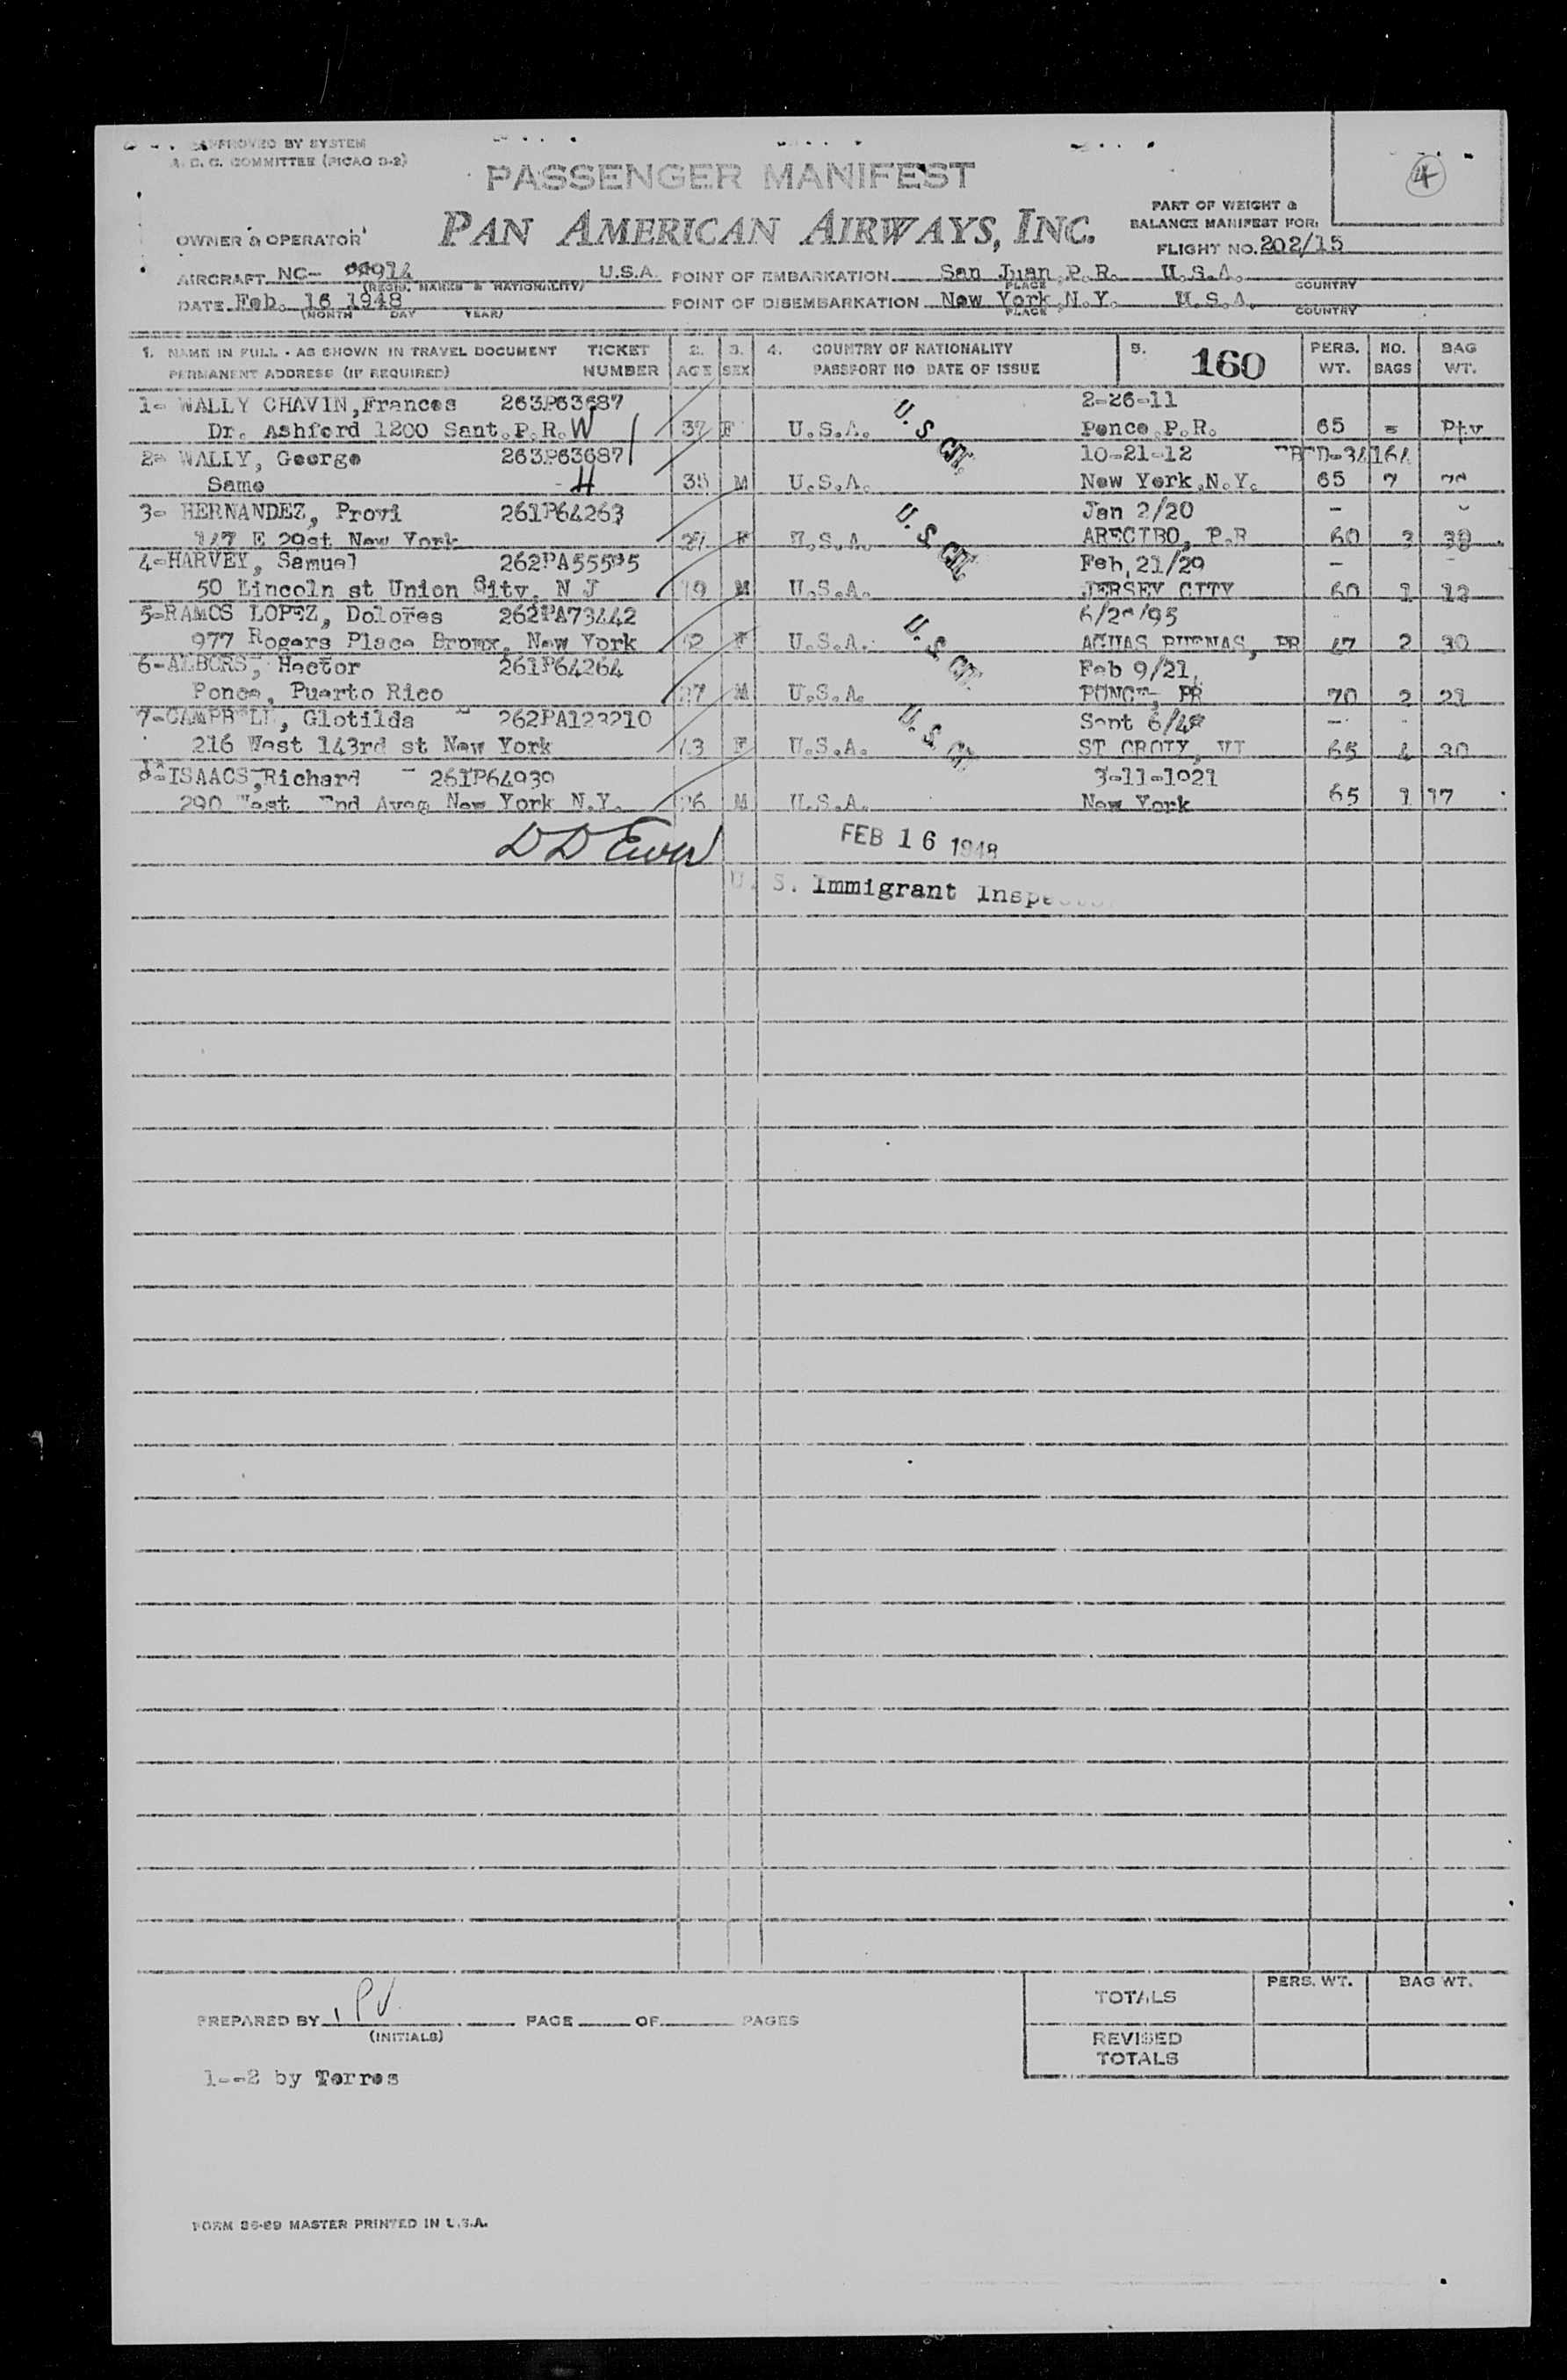 APPROVED BY SYSTEM
A. C. C. COMMITTEE (PICAO D-2)
PASSENGER MANIFEST
4
PAN AMERICAN AIRWAYS, INC.
PART OF WEIGHT &
BALANCE MANIFEST FOR:
OWNER & OPERATOR
FLIGHT NO. 202/15
AIRCRAFT NC- U.S.A. POINT OF EMBARKATION San Juan, P.R. U.S.A.
(REGIS. MARKS & NATIONALITY) PLACE COUNTRY
DATE Feb. 16 1948 POINT OF DISEMBARKATION New York, N.Y. U.S.A.
(MONTH DAY YEAR) PLACE COUNTRY
1. NAME IN FULL - AS SHOWN IN TRAVEL DOCUMENT TICKET 2. 3. 4. COUNTRY OF NATIONALITY 5. 160 PERS. NO. BAG
PERMANENT ADDRESS (IF REQUIRED) NUMBER AGE SEX PASSPORT NO DATE OF ISSUE WT. BAGS WT.
1- WALLY CHAVIN, Frances 263P63687 2-26-11
Dr. Ashford 1200 Sant. P.R. W 37 F U.S.A. U. S. CIT. Ponce, P.R. 65 -
2- WALLY, George 263P63687 10-21-12
Same H 35 M U.S.A. New York, N.Y. 65 7
3- HERNANDEZ, Provi 261P64263 Jan 2/20 -
147 E 29st New York 27 F U.S.A. U. S. CIT. ARECIBO, P.R 60 3
4-HARVEY, Samuel 262PA55535 Feb, 21/29 -
50 Lincoln st Union City, N J 19 M U.S.A. JERSEY CITY 60 1
5-RAMOS LOPEZ, Dolores 262PA73442
977 Rogers Place Bronx, New York 52 F U.S.A. U. S. CIT. AGUAS BUENAS, PR 47 2 30
6-ALBORS, Hector 261P64264 Feb 9/21,
Ponce, Puerto Rico 27 M U.S.A. PONCE, PR 70 2 21
7-CAMPBELL, Clotilda 262PA123210 Sept
216 West 143rd st New York 43 F U.S.A. U. S. CIT. ST CROIX, VI 65 4 30
8-ISAACS, Richard 261P64939 3-11-1921
290 West End Aveg New York N.Y. 26 M U.S.A. New York 65 1 17
FEB 16 1948
U. S. Immigrant Inspector
PREPARED BY PV PAGE OF PAGES
(INITIALS)
TOTALS PERS. WT. BAG WT.
REVISED
TOTALS
1--2 by Torres
FORM 36-89 MASTER PRINTED IN U.S.A.